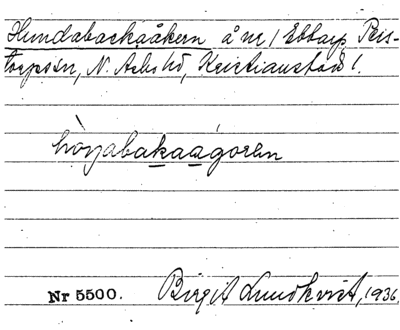 Hundabackaåkern å nr 1 Ebbarp, Pers-
torps sn, N. Åsbo hd, Kristianstad l.
hòṇabakaágoren
Nr 5500. Birgit Lundkvist, 1936.